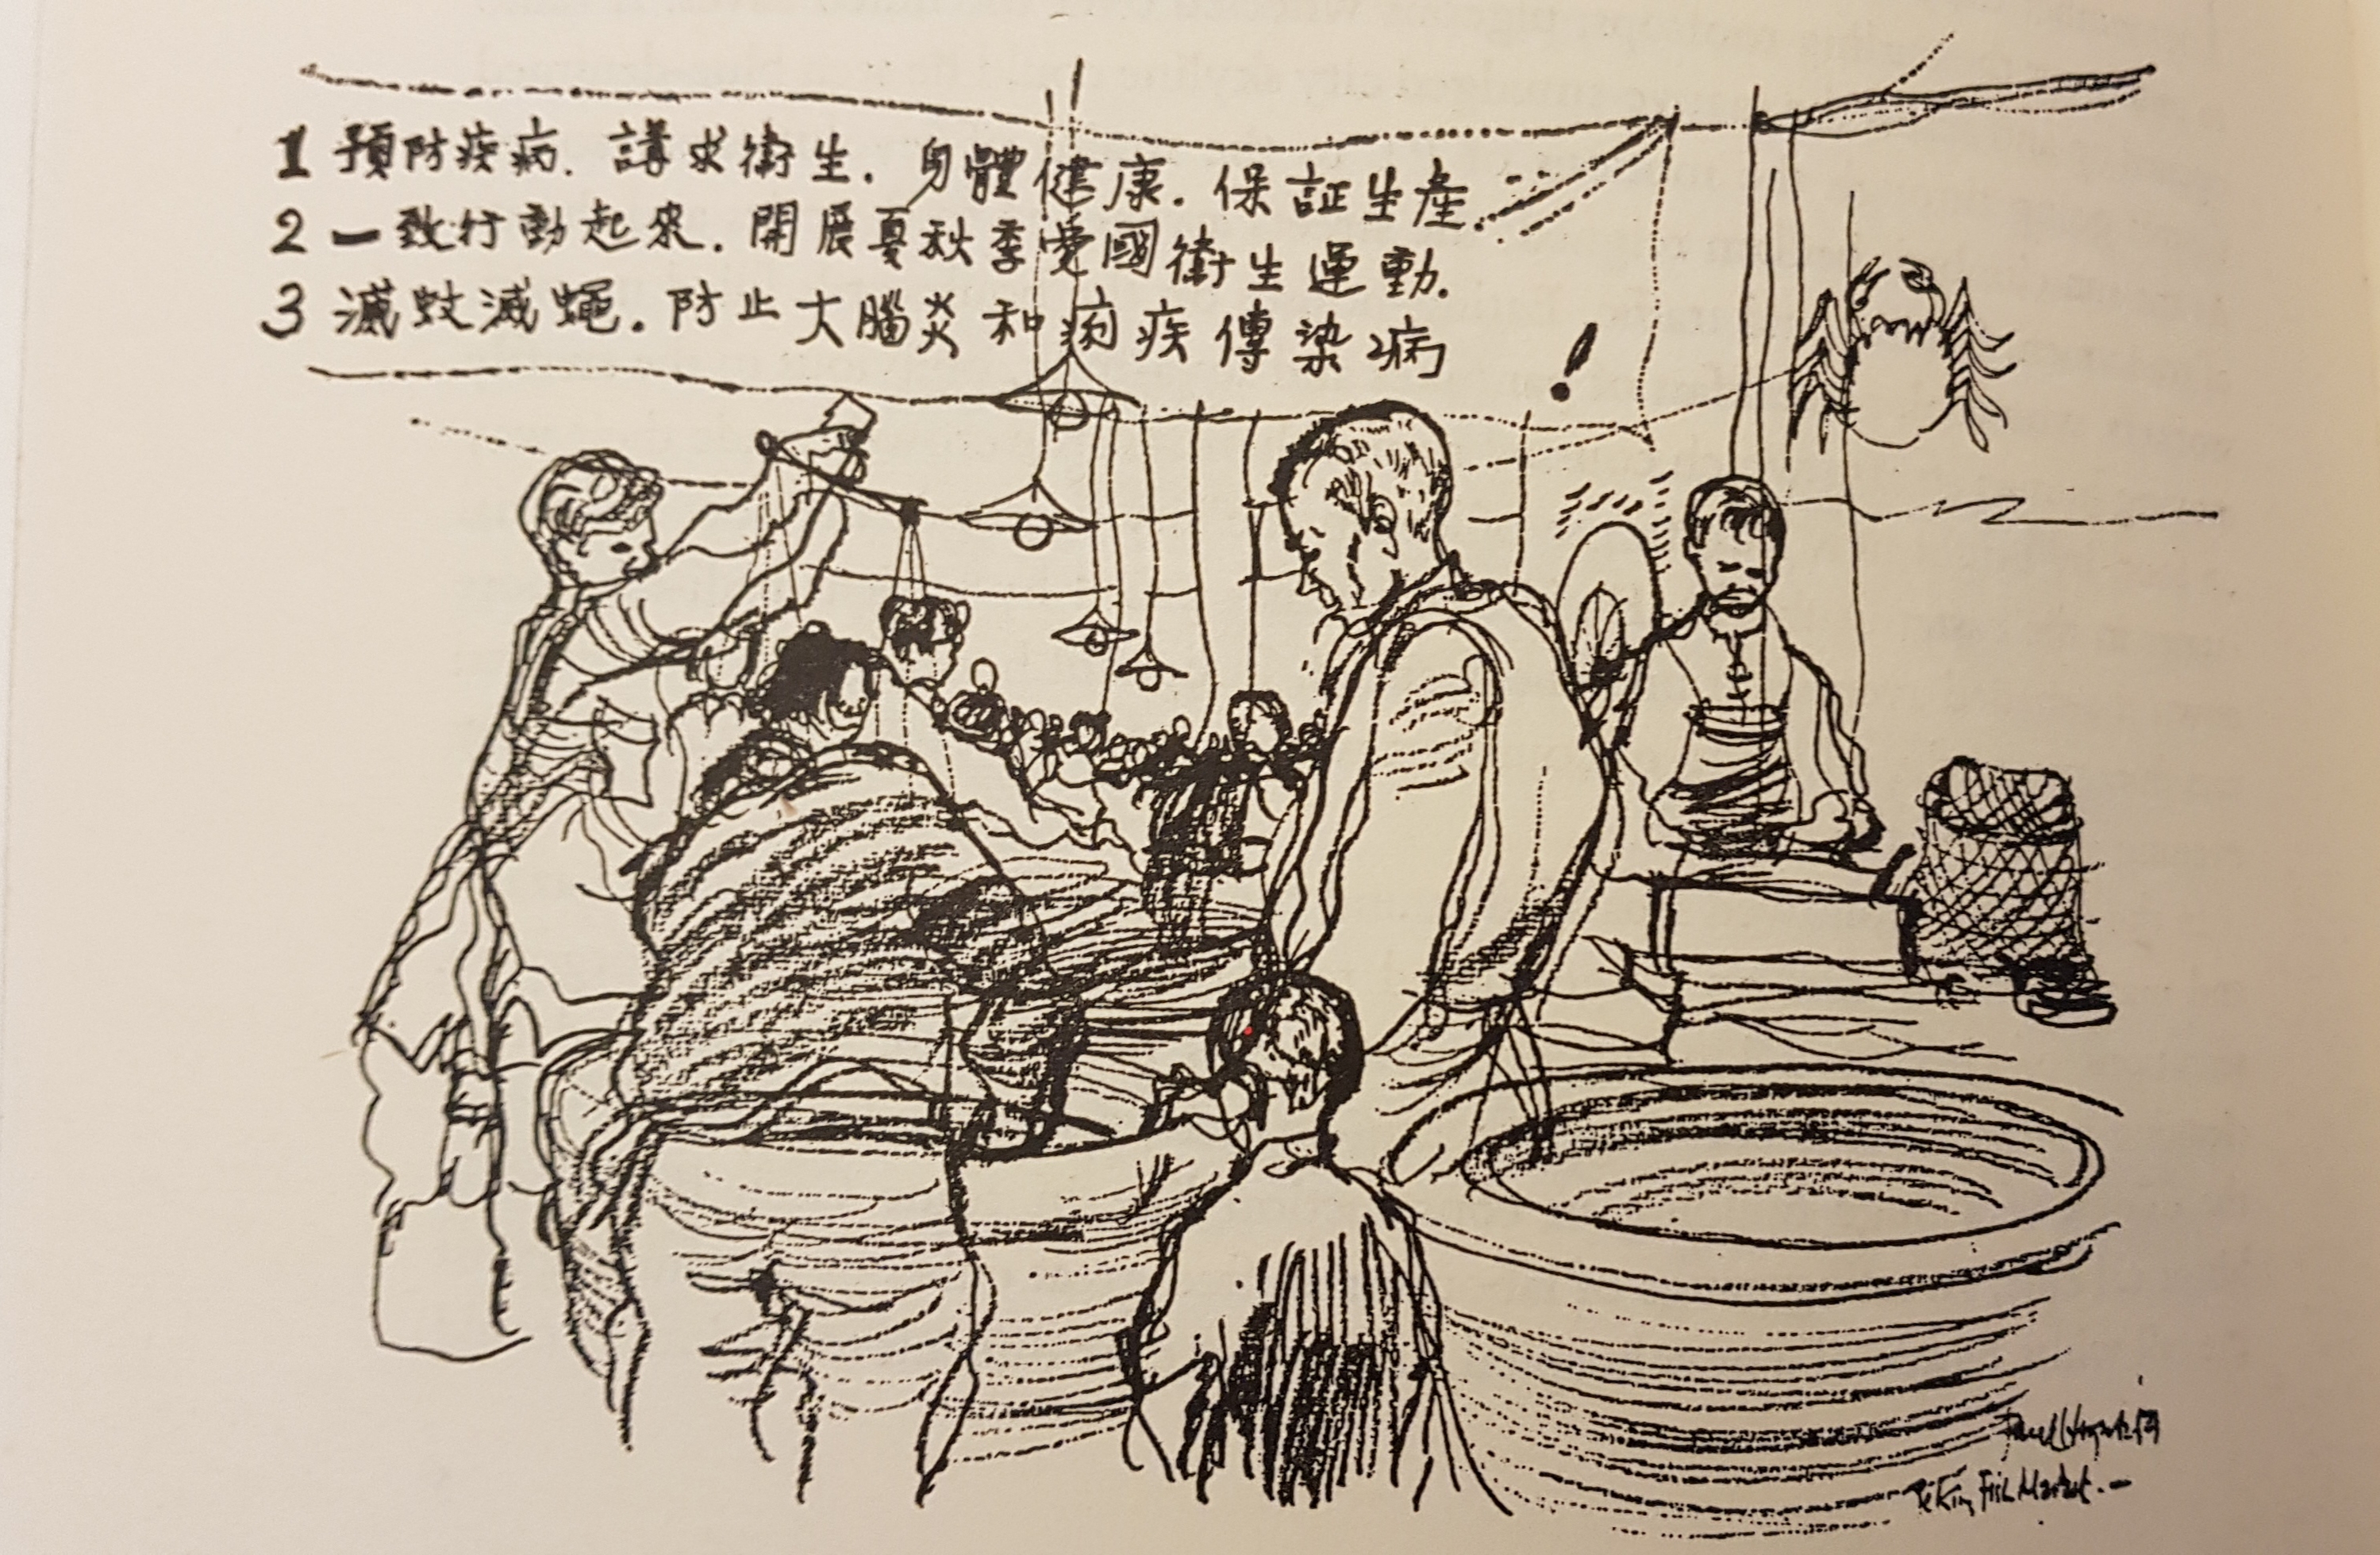 1 預防疾病. 講求衛生. 身體健康. 保証生產
2 一致行動起來. 開展夏秋季愛國衛生運動.
3 滅蚊滅蠅. 防止大腦炎和痢疾傳染病
!
Paul Hogarth 54
Peking Fish Market. -